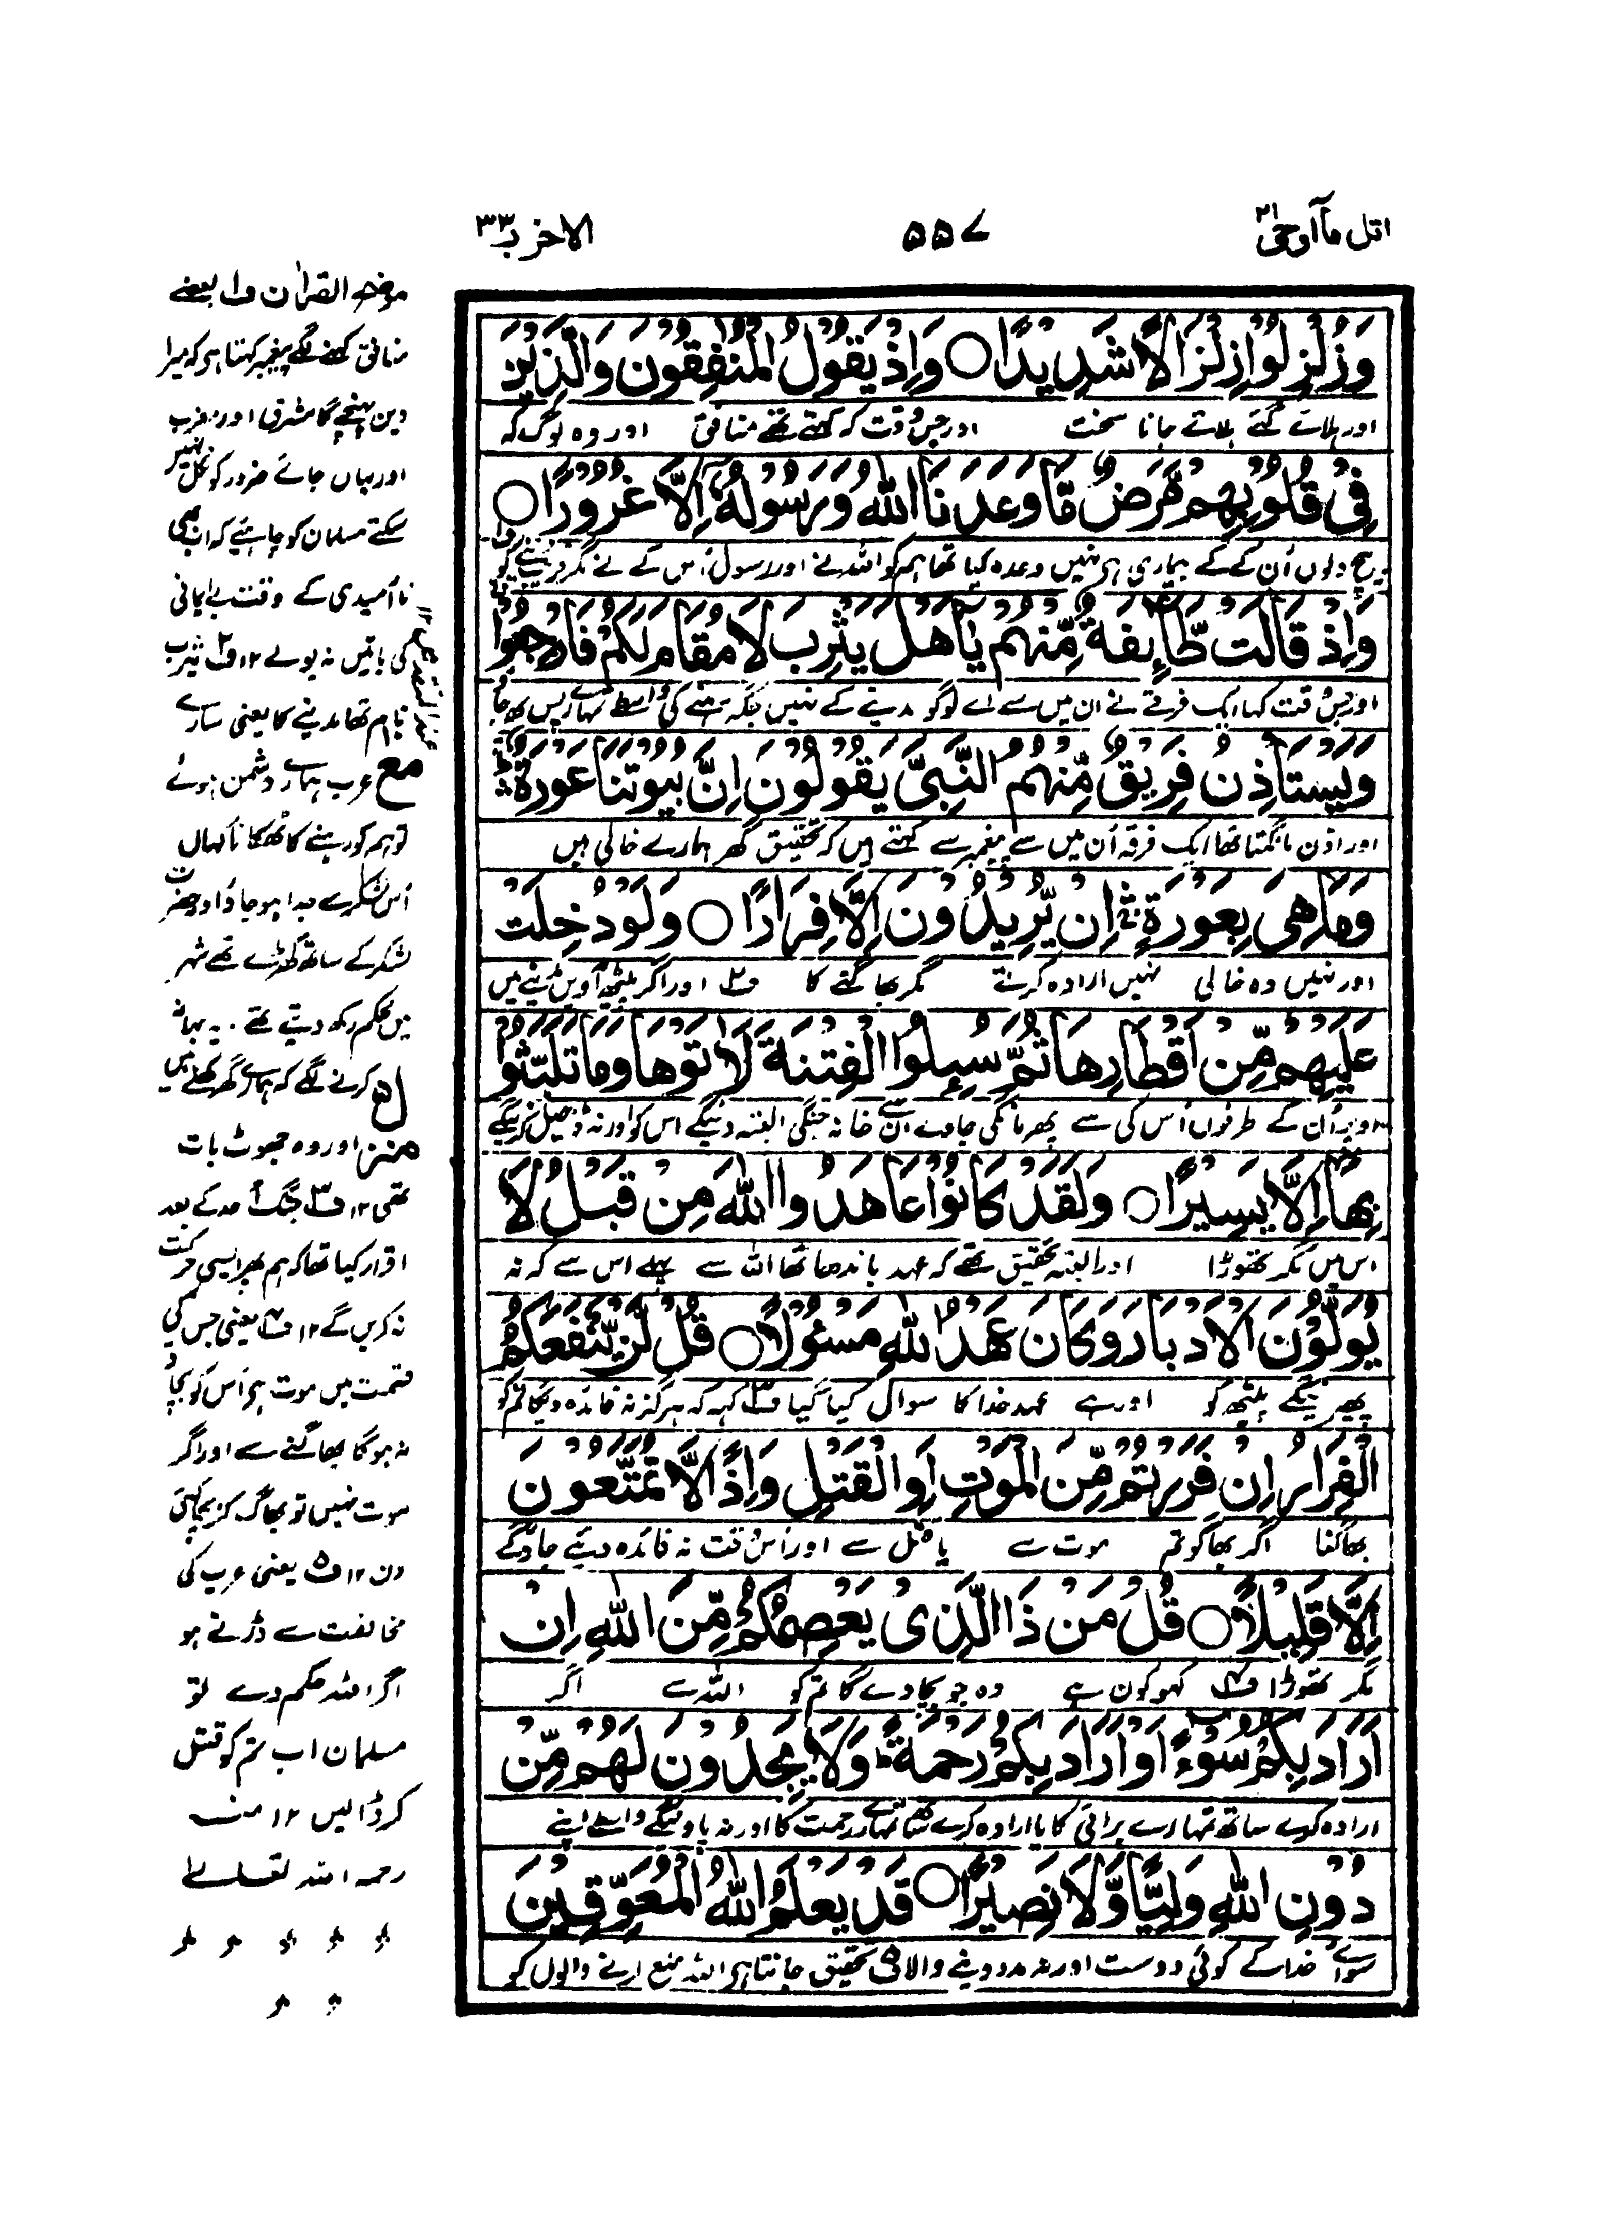 اتل مآ اوحی ۲۱
۵۵۷
الاحزاب ۳۳
وَزُلْزِلُوْا زِلْزَالًا شَدِیْدًا ○ وَاِذْ یَقُوْلُ الْمُنٰفِقُوْنَ وَالَّذِیْنَ
اور ہلائے گئے ہلائے جانا سخت اور جس وقت کہ کہتے تھے منافق اور وہ لوگ کہ
فِیْ قُلُوْبِهِمْ مَّرَضٌ مَّا وَعَدَنَا اللّٰهُ وَرَسُوْلُهٗۤ اِلَّا غُرُوْرًا ○
بیچ دلوں اُن کے کے بیماری ہے نہیں وعدہ کیا تھا ہم کو اللہ نے اور رسول اُس کے نے مگر فریب
وَاِذْ قَالَتْ طَّآئِفَةٌ مِّنْهُمْ یٰۤاَهْلَ یَثْرِبَ لَا مُقَامَ لَكُمْ فَارْجِعُوْا
اور جس وقت کہا ایک فرقے نے ان میں سے اے لوگو مدینے کے نہیں جگہ رہنے کی واسطے تمہارے پس پھر جاؤ
وَیَسْتَاْذِنُ فَرِیْقٌ مِّنْهُمُ النَّبِیَّ یَقُوْلُوْنَ اِنَّ بُیُوْتَنَا عَوْرَةٌ
اور اذن مانگتا تھا ایک فرقہ اُن میں سے پیغمبر سے کہتے ہیں کہ تحقیق گھر ہمارے خالی ہیں
وَمَا هِیَ بِعَوْرَةٍ اِنْ یُّرِیْدُوْنَ اِلَّا فِرَارًا ○ وَلَوْ دُخِلَتْ
اور نہیں وہ خالی نہیں ارادہ کرتے مگر بھاگنے کا ف۲ اور اگر پیٹھ آویں مدینے میں
عَلَیْهِمْ مِّنْ اَقْطَارِهَا ثُمَّ سُىِٕلُوا الْفِتْنَةَ لَاٰتَوْهَا وَمَا تَلَبَّثُوْا
اوپر اُن کے طرفوں اُس کی سے پھر مانگی جاوے ان سے خانہ جنگی البتہ دینگے اس کو اور نہ ڈھیل کرینگے
بِهَاۤ اِلَّا یَسِیْرًا ○ وَلَقَدْ كَانُوْا عَاهَدُوا اللّٰهَ مِنْ قَبْلُ لَا
اس میں مگر تھوڑا اور البتہ تحقیق تھے کہ عہد باندھا تھا اللہ سے پہلے اس سے کہ نہ
یُوَلُّوْنَ الْاَدْبَارَ وَكَانَ عَهْدُ اللّٰهِ مَسْئُوْلًا ○ قُلْ لَّنْ یَّنْفَعَكُمُ
پھیرینگے پیٹھ کو اور ہے عہد خدا کا سوال کیا گیا ف۳ کہہ کہ ہرگز نہ فائدہ دیگا تم کو
الْفِرَارُ اِنْ فَرَرْتُمْ مِّنَ الْمَوْتِ اَوِ الْقَتْلِ وَاِذًا لَّا تُمَتَّعُوْنَ
بھاگنا اگر بھاگو تم موت سے یا قتل سے اور اُس وقت نہ فائدہ دیئے جاؤگے
اِلَّا قَلِیْلًا ○ قُلْ مَنْ ذَا الَّذِیْ یَعْصِمُكُمْ مِّنَ اللّٰهِ اِنْ
مگر تھوڑا ف۴ کہو کون ہے وہ جو بچا دے گا تم کو اللہ سے اگر
اَرَادَ بِكُمْ سُوْٓءًا اَوْ اَرَادَ بِكُمْ رَحْمَةً وَلَا یَجِدُوْنَ لَهُمْ مِّنْ
ارادہ کرے ساتھ تمہارے برائی کا یا ارادہ کرے ساتھ تمہارے رحمت کا اور نہ پاوینگے واسطے اپنے
دُوْنِ اللّٰهِ وَلِیًّا وَّلَا نَصِیْرًا ○ قَدْ یَعْلَمُ اللّٰهُ الْمُعَوِّقِیْنَ
سوائے خدا کے کوئی دوست اور نہ مدد دینے والا ف۵ تحقیق جانتا ہے اللہ منع کرنے والوں کو
موضح القرآن ف۱ بعضے
منافق کہنے لگے پیغمبر کہتا ہے کہ میرا
دین پہنچے گا مشرق اور مغرب
اور یہاں جائے ضرور کو نکل نہیں
سکتے مسلمان کو چاہئے کہ اب بھی
نا اُمیدی کے وقت بے ایمانی
کی باتیں نہ بولے ۱۲ ف۲ یثرب
نام تھا مدینے کا یعنی سارے
عرب ہمارے دشمن ہوئے
تو ہم کو رہنے کا ٹھکانا کہاں
اُس لشکر سے جدا ہو جاؤ اور حضرت
لشکر کے ساتھ کھڑے تھے شہر
میں محکم رکھ دیتے تھے ۔ یہ بہانہ
کرنے لگے کہ ہمارے گھر کھلے ہیں
اور وہ جھوٹ بات
تھی ۱۲ ف۳ جنگ اُحد کے بعد
اقرار کیا تھا کہ ہم پھر ایسی حرکت
نہ کریں گے ۱۲ ف۴ یعنی جس کی
قسمت میں موت ہے اُس کو بچاؤ
نہ ہوگا بھاگنے سے اور اگر
موت نہیں تو بھاگ کر بچا کَے
دن ۱۲ ف۵ یعنی عرب کی
مخالفت سے ڈرتے ہو
اگر اللہ حکم دے تو
مسلمان اب تم کو قتل
کر ڈالیں ۱۲ منہ
رحمہ اللہ تعالےٰ